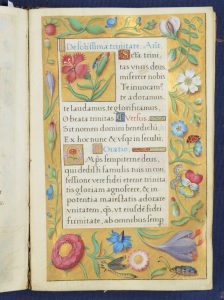 De sc̄tissima trinitate. Añt.
Sc̄ta trini,
tas vnus deus
miserere nobis
Te inuocam⁹
te adoramus
te laudamus, te glorificamus,
O beata trinitas Versus.
Sit nomen domini benedictū.
Ex hoc nunc & vsq; in seculū.
Oratio.
Mn̄ps sempiterne deus,
qui dedisti famulis tuis in con,
fessione vere fidei eterne trinita
tis gloriam agnoscere, & in
potentia maiestatis adorare
vnitatem, qs̄. vt eiusdem fidei
firmitate, ab omnibus semp